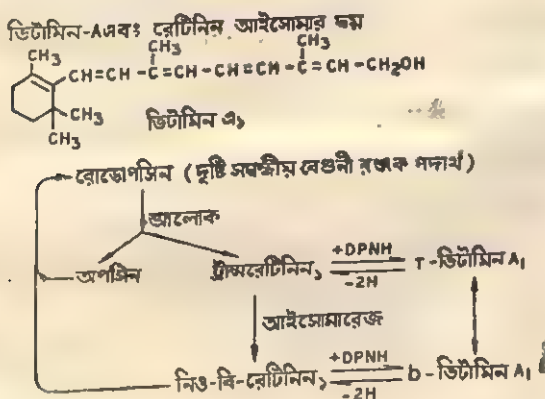 ভিটামিন-Aএবং রেটিনিন আইসোমার চক্র
CH3 CH3 CH3
CH=CH-C=CH-CH=CH-C=CH-CH2OH
CH3
CH3 ভিটামিন এ১
রোডোপসিন (দৃষ্টি সম্বন্ধীয় বেগুনী রঞ্জক পদার্থ)
আলোক
অপসিন ট্রান্সরেটিনিন১ +DPNH -2H T-ভিটামিন A1
আইসোমারেজ
নিও-বি-রেটিনিন১ +DPNH -2H b-ভিটামিন A1